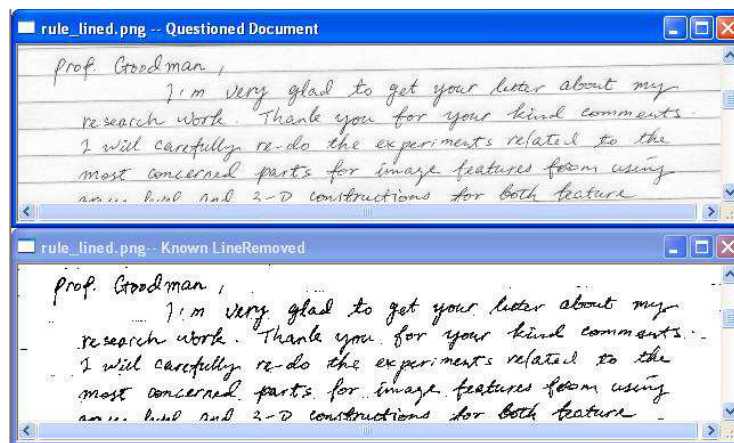 rule_lined.png -- Questioned Document
Prof. Goodman,
I'm very glad to get your letter about my
research work. Thank you for your kind comments.
I will carefully re-do the experiments related to the
most concerned parts for image features from using
level and 3-D constructions for both feature
rule_lined.png-- Known LineRemoved
Prof. Goodman,
I'm very glad to get your letter about my
research work. Thank you for your kind comments.
I will carefully re-do the experiments related to the
most concerned parts for image features from using
level and 3-D constructions for both feature